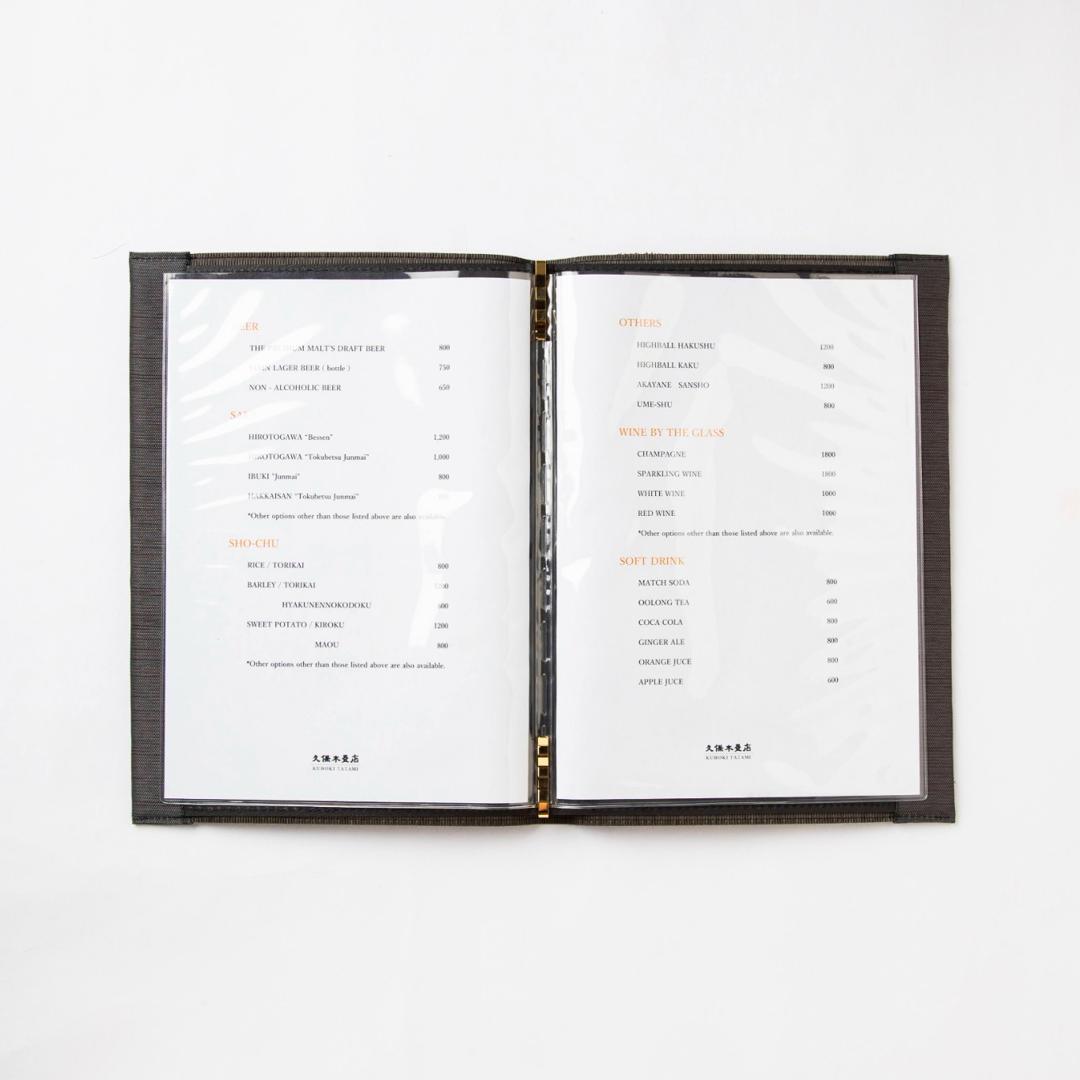 THE PREMIUM MALT'S DRAFT BEER 800
LAGER BEER ( bottle ) 750
NON - ALCOHOLIC BEER 650
HIROTOGAWA "Bessen" 1,200
HIROTOGAWA "Tokubetsu Junmai" 1,000
IBUKI "Junmai" 800
HAKKAISAN "Tokubetsu Junmai"
*Other options other than those listed above are also available.
SHO-CHU
RICE / TORIKAI 800
BARLEY / TORIKAI
HYAKUNENNOKODOKU 600
SWEET POTATO / KIROKU 1200
MAOU 800
*Other options other than those listed above are also available.
久保木畳店
KUBOKI TATAMI
OTHERS
HIGHBALL HAKUSHU 1200
HIGHBALL KAKU 800
AKAYANE SANSHO 1200
UME-SHU 800
WINE BY THE GLASS
CHAMPAGNE 1800
SPARKLING WINE 1000
WHITE WINE 1000
RED WINE 1000
*Other options other than those listed above are also available.
SOFT DRINK
MATCH SODA 800
OOLONG TEA 600
COCA COLA 800
GINGER ALE 800
ORANGE JUCE 800
APPLE JUCE 600
久保木畳店
KUBOKI TATAMI